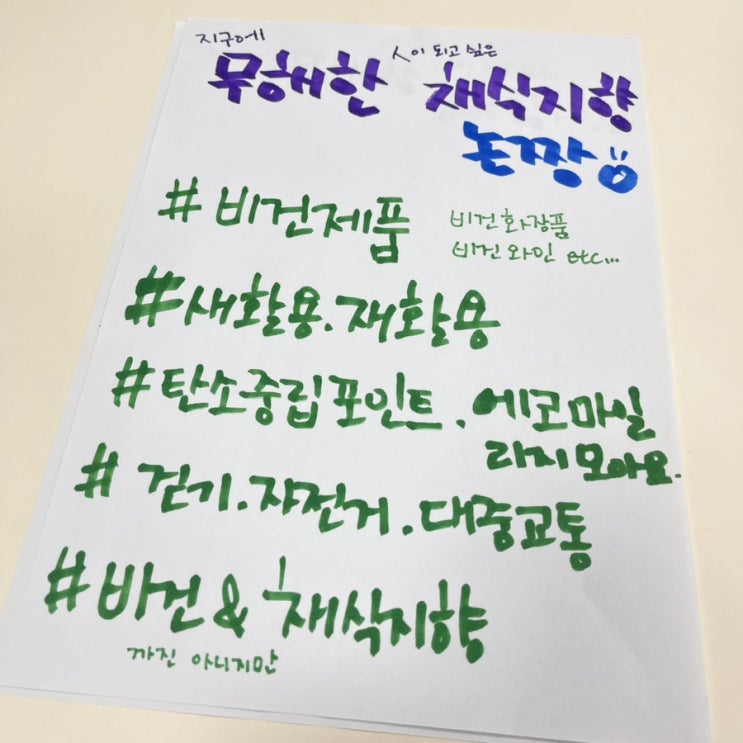 지구에 무해한 사람이 되고 싶은 채식지향
논짱
#비건제품 비건화장품
비건와인 etc...
#새활용.재활용
#탄소중립포인트. 에코마일
리지모아요.
# 걷기.자전거.대중교통
#비건 & 채식지향
까진 아니지만